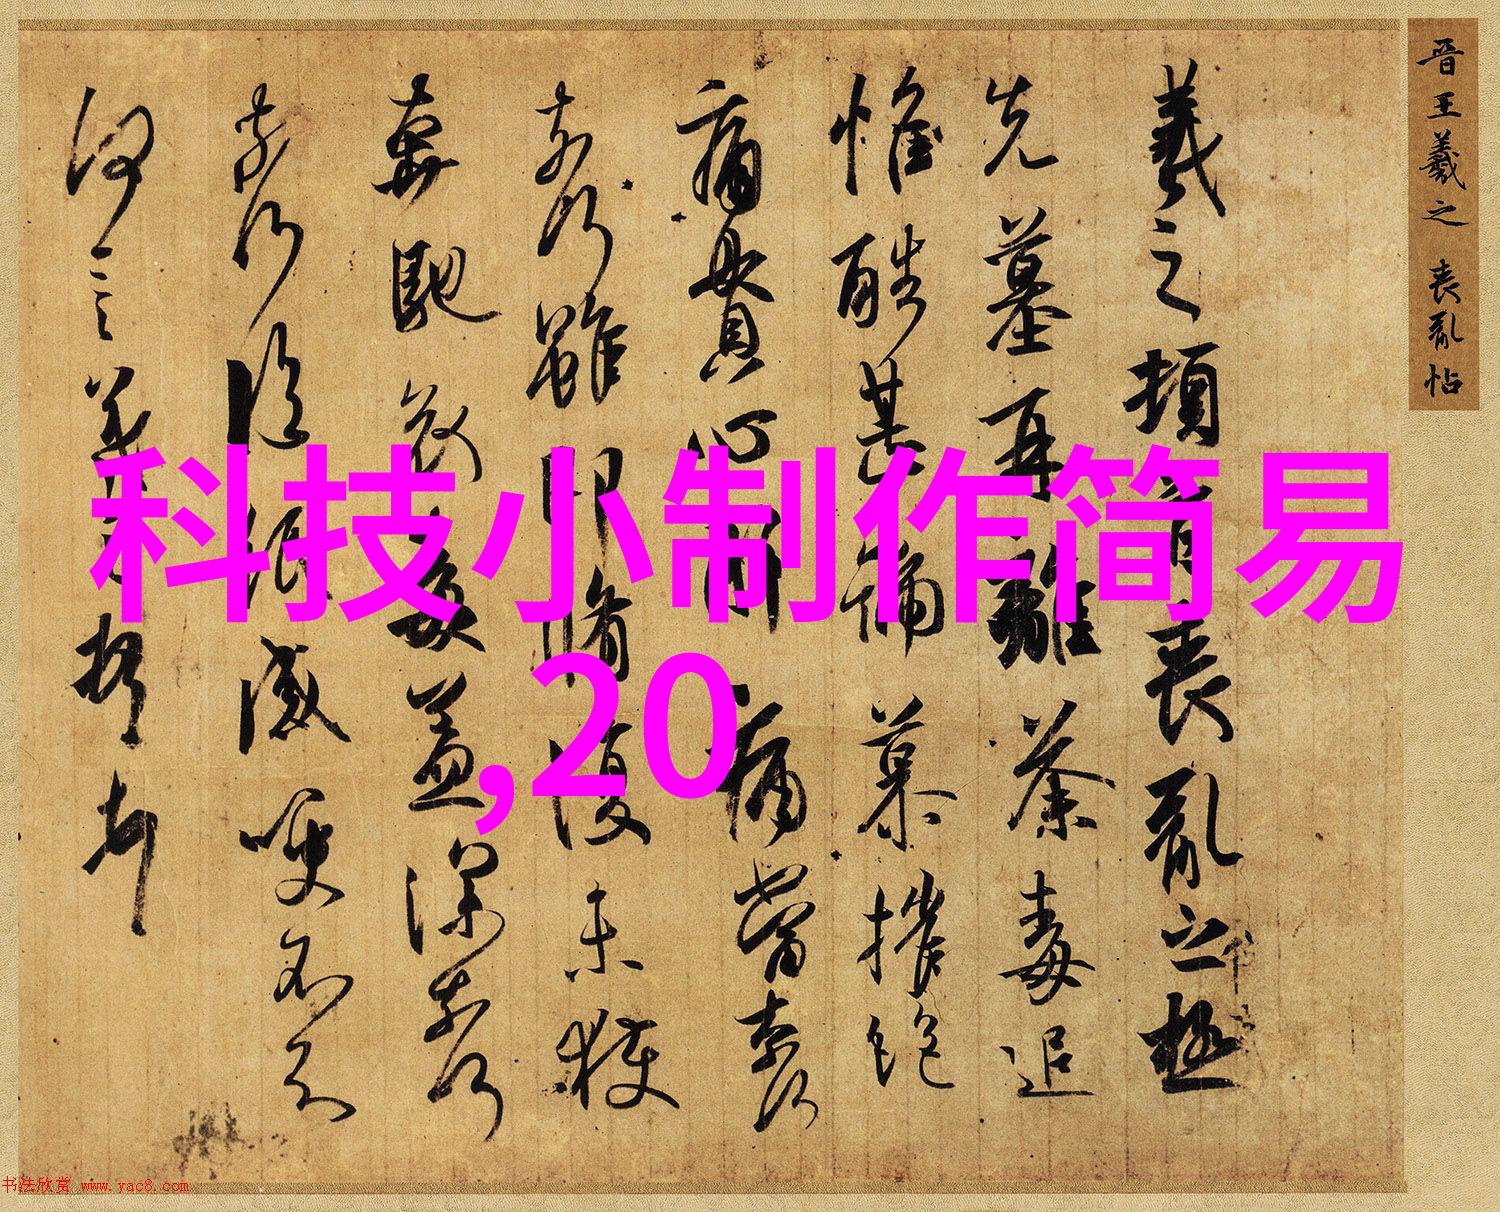 晋王羲之 喪亂帖
羲之頓首喪亂之極
先墓再離荼毒追
惟酷甚號慕摧絕
痛貫心肝痛當奈何
奈何雖即脩復未獲
奔馳哀毒益深奈何
奈何臨紙感哽不知
何言羲之頓首
科技小制作简易
,20
书法欣赏 www.yac8.com